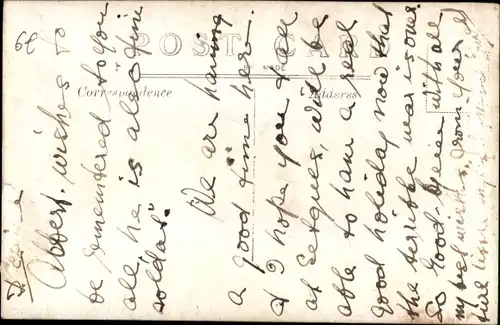 6d
POST CARD
MADE
Correspondence
Address
Albert. wishes to
be remembered to you
all he is also a fine
soldier.
We are having
a good time here.
I hope you & all
at Selgues, will be
able to have a real
good holiday now that
the terrible war is over.
So Good-bye with all
my best wishes, from your old
little